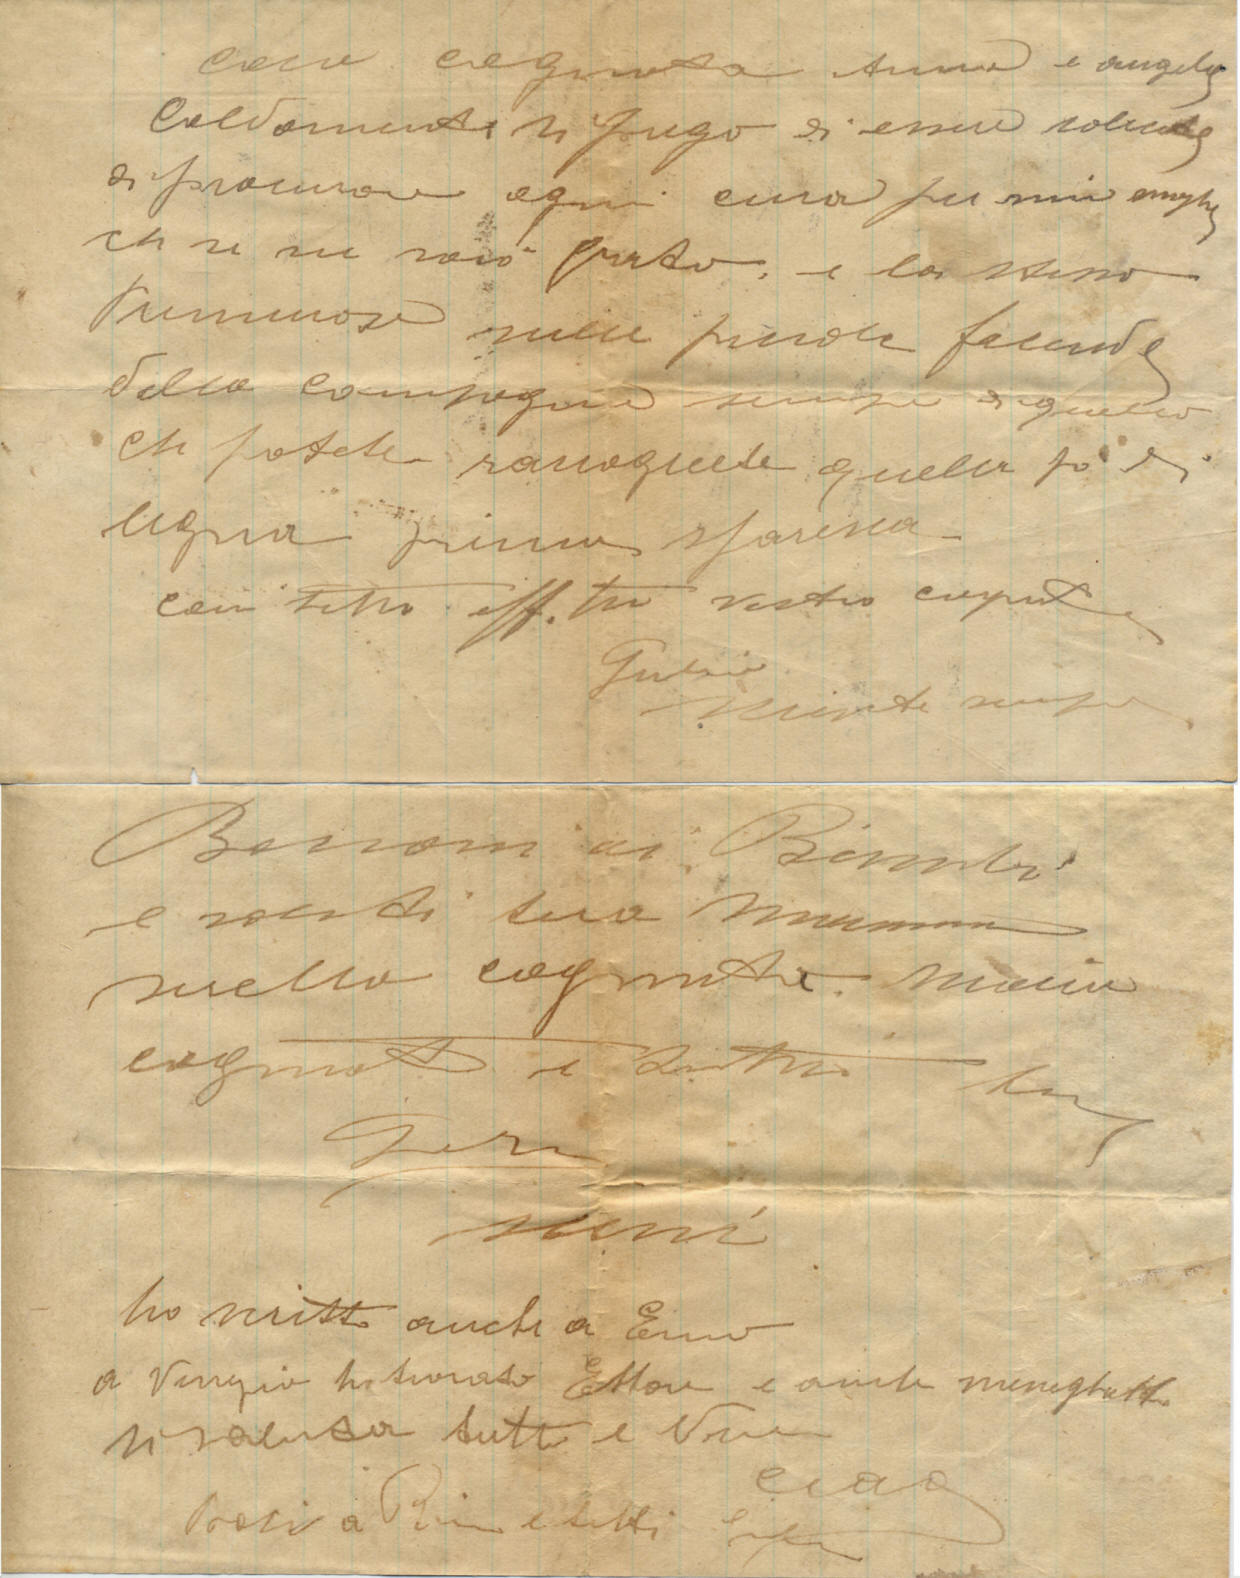 cara cognata Anna e angela
Caldamente vi prego di essere solecite
di procurare ogni cura per mia moglie
che ve ne sarò grato, e lo stesso
Premurose nelle picole facende
della campagna sempre di quello
che potete racogliete quella pò di
legna prima sparisca
con tutto aff.to vostro cognato
Giulio
scrivete sempre
Baccioni ai Bimbi
e saluti tua mamma
sorella cognata. Maria
cognato e tutti
ho scritto anche a Erno
a Venezia ho trovato Ettore e anche meneghetti
vi saluta tutti e
ciao
Baci a e tutti